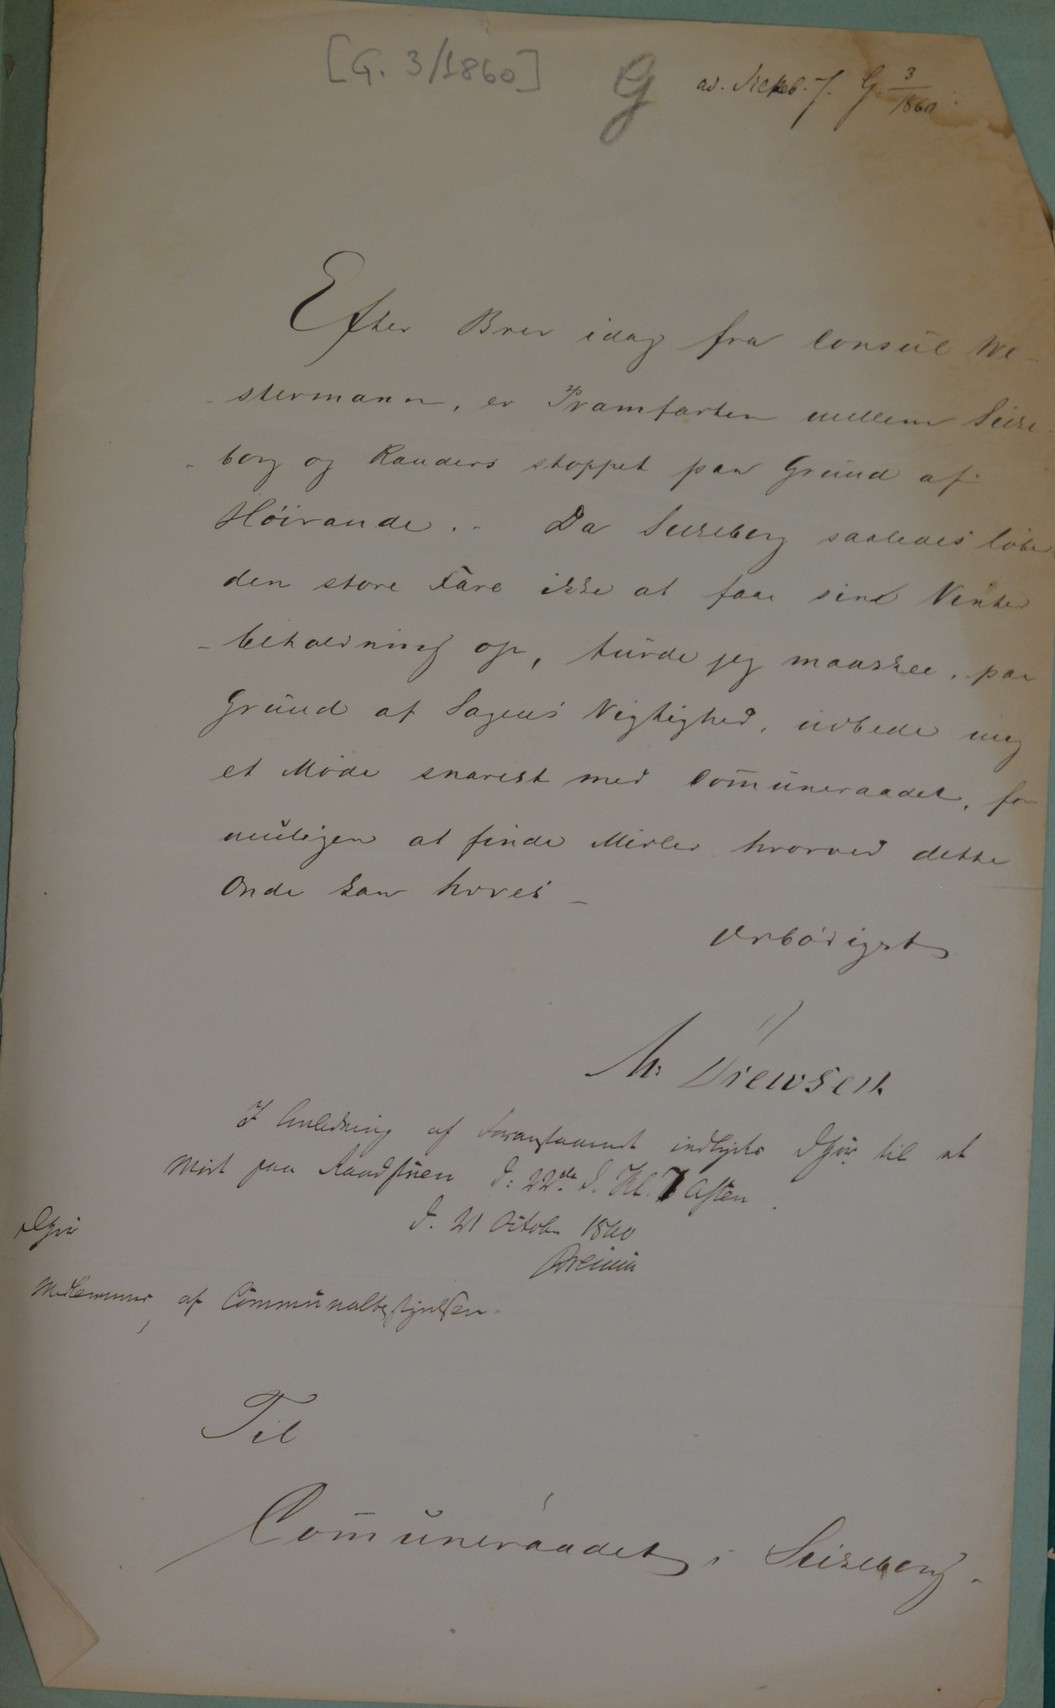 [G. 3/1860]
G
ad. Silkeb. J. G 3/1860
Efter Brev idag fra Consul We-
stermann, er Pramfarten mellem Silke-
borg og Randers stoppet paa Grund af
Høivande. Da Silkeborg saaledes løber
den store Fare ikke at faae sine Vinter
beholdning op, turde jeg maaskee, paa
Grund af Sagens Vigtighed, udbede mig
et Møde snarest med Com̄uneraadet, for
muligen at finde Midler hvorved dette
Onde kan hæves
Ærbødigst
M: Drewsen
I Anledning af foranstaaende indbydes D'Hrr. til et
Møde paa Raadstuen d: 22de d. Kl. 7 Aften.
d. 21 Octob. 1860
D'Hrr
Medlemmer af Communalbestyrelsen.
Til
Com̄uneraadet i Silkeborg.